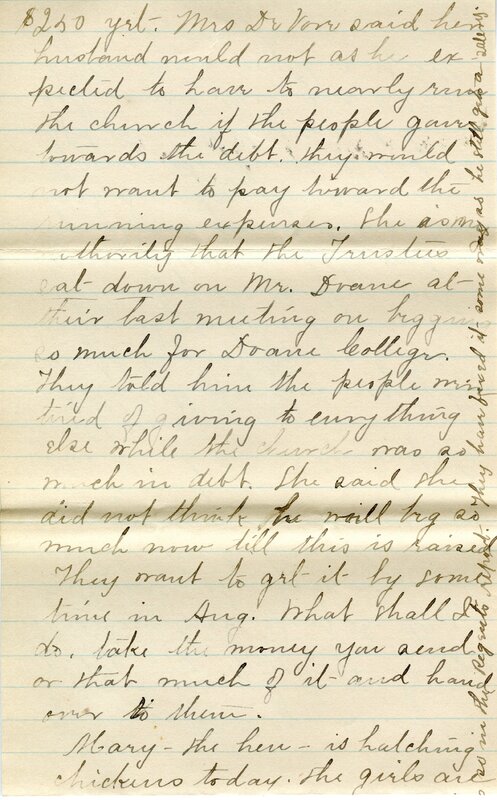 $250 yet. Mrs De Vore said her
husband would not as he ex-
pected to have to nearly run
the church if the people gave
towards the debt. they would
not want to pay toward the
running expenses. She is my
authority that the Trustees
sat down on Mr. Doane at
their last meeting on begging
so much for Doane College.
They told him the people were
tired of giving to everything
else while the church was so
much in debt. She said she
did not think he will beg so
much now till this is raised
They want to get it by some
time in Aug. What shall I
do. take the money you send
or that much of it and hand
over to them.
Mary - the hen - is hatching
chickens today. the girls are
so in the Regents report. They have fixed it some way as he still gets a salery.